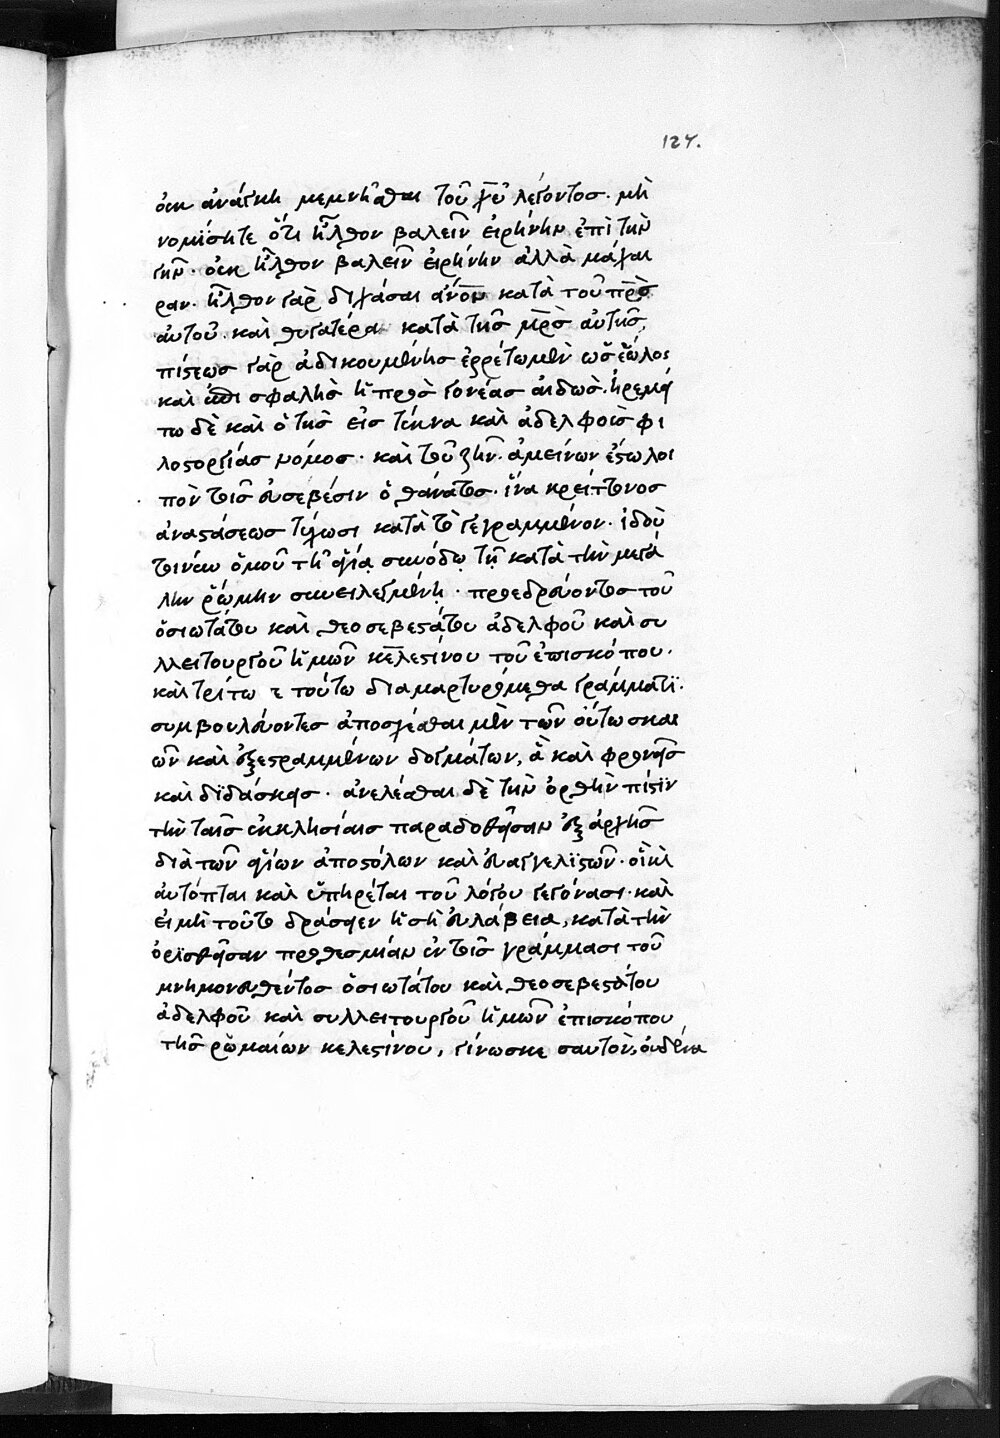 127.
οὐκ ἀνάγκη μεμνῆσθαι τοῦ χῡ λέγοντος· μὴ
νομίσητε ὅτι ἦλθον βαλεῖν εἰρήνην ἐπὶ τὴν
γῆν· οὐκ ἦλθον βαλεῖν εἰρήνην ἀλλὰ μάχαι
ραν· ἦλθον γὰρ διχάσαι ἄνο̅ν κατὰ τοῦ πρ̅σ
αὐτοῦ· καὶ θυγατέρα κατὰ τῆσ μρ̅σ αὐτῆσ,
πίστεωσ γὰρ ἀδικουμένησ ἐρρέτω μὲν ὡσ ἕωλοσ
καὶ σφαλὴσ ἡ πρὸσ γονέασ αἰδὼσ· ἠρεμεί
τω δὲ καὶ ὁ τῆσ εἰσ τέκνα καὶ ἀδελφοὺσ φι
λοστοργίασ νόμοσ· καὶ τοῦ ζῆν· ἀμείνων ἔστω λοι
πὸν τοῖσ εὐσεβέσιν ὁ θάνατοσ· ἵνα κρείττονοσ
ἀναστάσεωσ τύχωσι κατὰ τὸ γεγραμμένον· ἰδοὺ
τοίνυν ὁμοῦ τῇ ἁγίᾳ συνόδῳ τῇ κατὰ τὴν μεγά
λην ῥώμην συνειλεγμένῃ· προεδρεύοντοσ τοῦ
ὁσιωτάτου καὶ θεοσεβεστάτου ἀδελφοῦ καὶ συ
λλειτουργοῦ ἡμῶν κελεστίνου τοῦ ἐπισκόπου·
καὶ τρίτω τούτω διαμαρτυρόμεθα γράμματϊ·
συμβουλεύοντεσ ἀποσχέσθαι μὲν τῶν οὕτω σκαι
ῶν καὶ ἐξεστραμμένων δογμάτων, ἃ καὶ φρονεῖσ
καὶ διδάσκεισ· ἀνελέσθαι δὲ τὴν ὀρθὴν πίστϊν
τὴν ταῖσ ἐκκλησίαισ παραδοθεῖσαν ἐξ ἀρχῆσ
διὰ τῶν ἁγίων ἀποστόλων καὶ εὐαγγελϊστῶν· οἳ καὶ
αὐτόπται καὶ ὑπηρέται τοῦ λόγου γεγόνασι· καὶ
εἰ μὴ τοῦτο δράσειεν ἡ σὴ εὐλάβεια, κατὰ τὴν
ὁρϊσθεῖσαν προθεσμίαν ἐν τοῖσ γράμμασι τοῦ
μνημονευθέντοσ ὁσιωτάτου καὶ θεοσεβεστάτου
ἀδελφοῦ καὶ συλλειτουργοῦ ἡμῶν ἐπισκόπου
τῆσ ῥωμαίων κελεστίνου, γίνωσκε σαυτὸν, οὐδένα